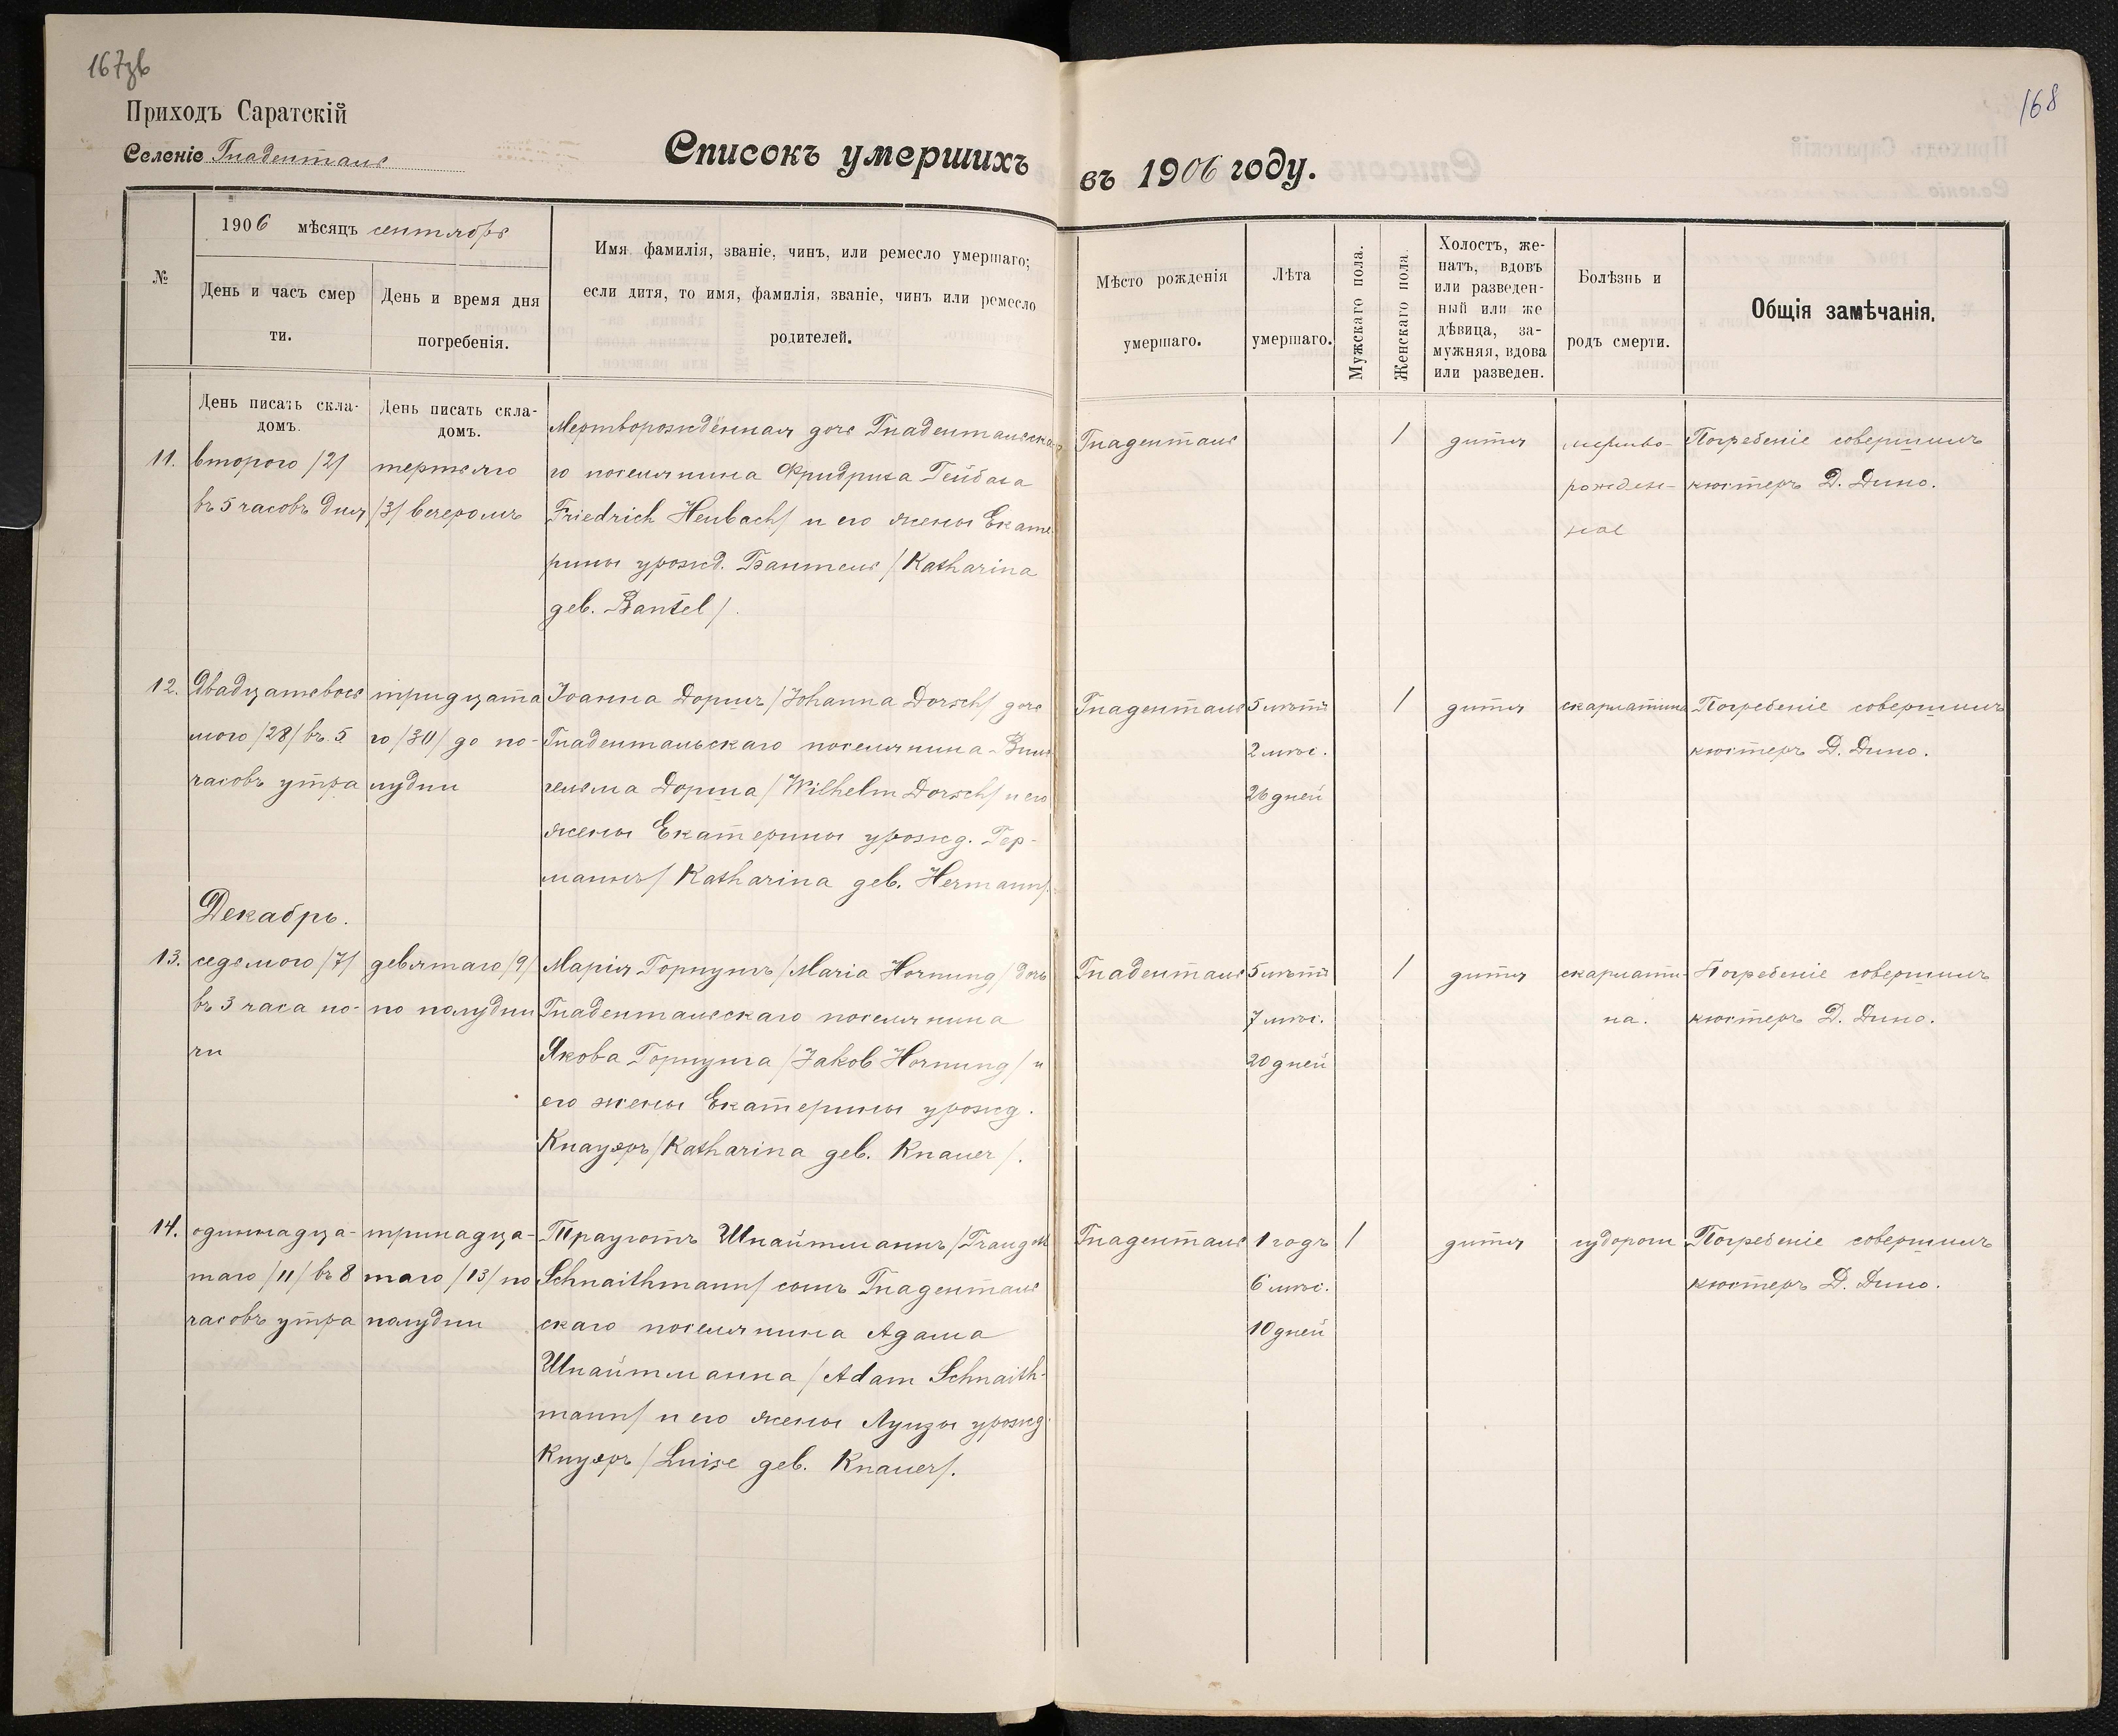 167зв
168
Приходъ Саратскій
Селеніе Гнаденталь
Списокъ умершихъ въ 1906 году.
№
1906 мѣсяцъ сентябрь
День и часъ смер
ти.
День и время дня
погребенія.
Имя фамилія, званіе, чинъ, или ремесло умершаго;
если дитя, то имя, фамилія, званіе, чинъ или ремесло
родителей.
Мѣсто рожденія
умершаго.
Лѣта
умершаго.
Мужскаго пола.
Женскаго пола
Холостъ, же-
натъ, вдовъ
или разведен-
ный или же
дѣвица, за-
мужняя, вдова
или разведен.
Болѣзнь и
родъ смерти.
Общія замѣчанія.
День писать скла-
домъ.
День писать скла-
домъ.
11.
второго /2/
въ 5 часовъ дня
тертьяго
/3/ вечеромъ
Мертворождённая дочь Гнадентальска
го поселянина Фридриха Гейбаха
Friedrich Heubach/ и его жены Екате
рины урожд. Бантель /Katharina
geb. Bantel/.
Гнаденталь
1
дитя
мертво-
рожден-
ное
Погребеніе совершилъ
кюстеръ Д. Дино.
12.
Двадцатьвось
мого /28/ въ 5
часовъ утра
тридцата
го /30/ до по-
лудни
Іоанна Доршъ /Johanna Dorsch/ дочь
Гнадентальскаго поселянина Виль
гельма Дорша /Wilhelm Dorsch/ и его
жены Екатерины урожд. Гер-
маннъ/ Katharina geb. Hermann/.
Гнаденталь
5 лѣтъ
2 мѣс.
26 дней
1
дитя
скарлатина
Погребеніе совершилъ
кюстеръ Д. Дино.
Декабрь.
13.
седьмого /7/
въ 3 часа но-
чи
девятаго /9/
по полудни
Марія Горнунгъ /Maria Hornung/ дочь
Гнадентальскаго поселянина
Якова Горнунга /Jakob Hornung/ и
его жены Екатерины урожд.
Кнауэръ /Katharina geb. Knauer/.
Гнаденталь
5 лѣтъ
7 мѣс.
20 дней
1
дитя
скарлати-
на.
Погребеніе совершилъ
кюстеръ Д. Дино.
14.
одиннадца-
таго /11/ въ 8
часовъ утра
тринадца-
таго /13/ по
полудни
Трауготъ Шнайтманнъ /Traugott
Schnaithmann/ сынъ Гнаденталь
скаго поселянина Адама
Шнайтманна /Adam Schnaith-
mann/ и его жены Луизы урожд.
Кнуэръ /Luise geb. Knauer/.
Гнаденталь
1 годъ
6 мѣс.
10 дней
1
дитя
судороги
Погребеніе совершилъ
кюстеръ Д. Дино.